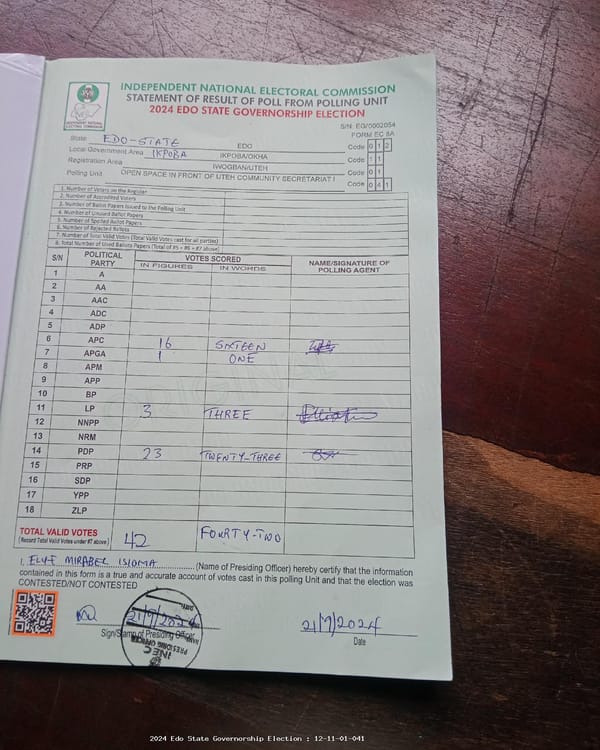 INDEPENDENT NATIONAL ELECTORAL COMMISSION
STATEMENT OF RESULT OF POLL FROM POLLING UNIT
2024 EDO STATE GOVERNORSHIP ELECTION
S/N: EG/0002054
FORM EC 8A
State EDO-STATE EDO Code 0 1 2
Local Government Area IKPOBA IKPOBA/OKHA Code 1 1
Registration Area IWOGBAN/UTEH Code 0 1
Polling Unit OPEN SPACE IN FRONT OF UTEH COMMUNITY SECRETARIAT I Code 0 4 1
1. Number of Voters on the Register
2. Number of Accredited Voters
3. Number of Ballot Papers Issued to the Polling Unit
4. Number of Unused Ballot Papers
5. Number of Spoiled Ballot Papers
6. Number of Rejected Ballots
7. Number of Total Valid Votes (Total Valid Votes cast for all parties)
8. Total Number of Used Ballots Papers (Total of #5 + #6 + #7 above)
S/N POLITICAL PARTY VOTES SCORED NAME/SIGNATURE OF POLLING AGENT
IN FIGURES IN WORDS
1 A
2 AA
3 AAC
4 ADC
5 ADP
6 APC 16 SIXTEEN
7 APGA 1 ONE
8 APM
9 APP
10 BP
11 LP 3 THREE
12 NNPP
13 NRM
14 PDP 23 TWENTY-THREE
15 PRP
16 SDP
17 YPP
18 ZLP
TOTAL VALID VOTES 42 FOURTY-TWO
(Record Total Valid Votes under #7 above)
I, MIRABEL ISIOMA (Name of Presiding Officer) hereby certify that the information
contained in this form is a true and accurate account of votes cast in this polling Unit and that the election was
CONTESTED/NOT CONTESTED
21/9/2024 21/9/2024
Sign/Stamp of Presiding Officer Date
PRESIDING OFFICER
INEC
2024 Edo State Governorship Election : 12-11-01-041